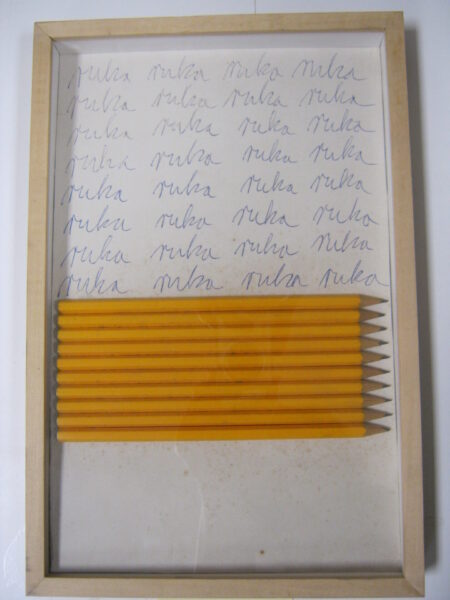 ruka ruka ruka ruka
ruka ruka ruka ruka
ruka ruka ruka ruka
ruka ruka ruka ruka
ruka ruka ruka ruka
ruka ruka ruka ruka
ruka ruka ruka ruka
ruka ruka ruka ruka